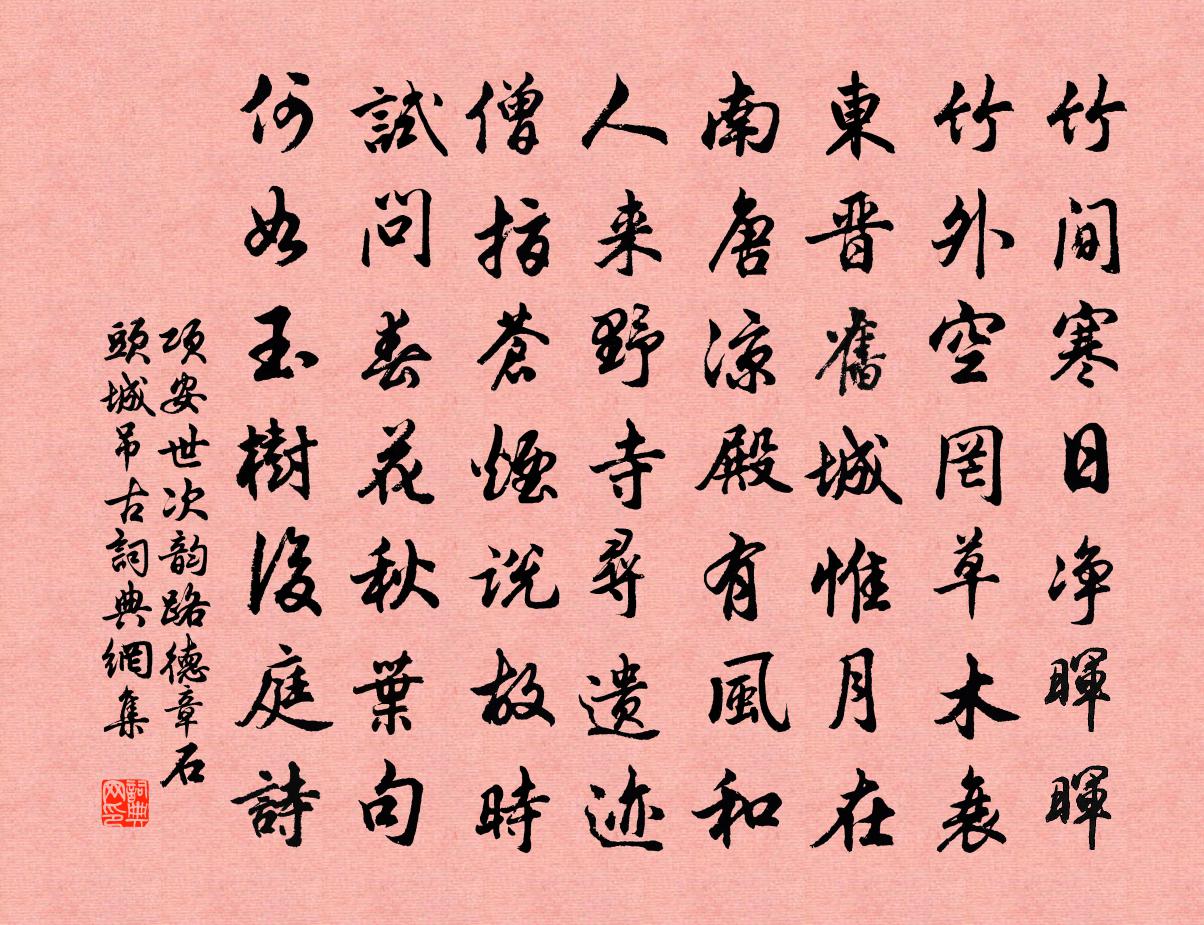 竹間寒日净暉暉
竹外空罔草木衰
東晋舊城惟月在
南唐涼殿有風和
人来野寺尋遺迹
僧指蒼煙説故時
試問春花秋葉句
何如玉樹後庭詩
項安世次韵路德章石
頭城吊古詞典網集
詞典
网印